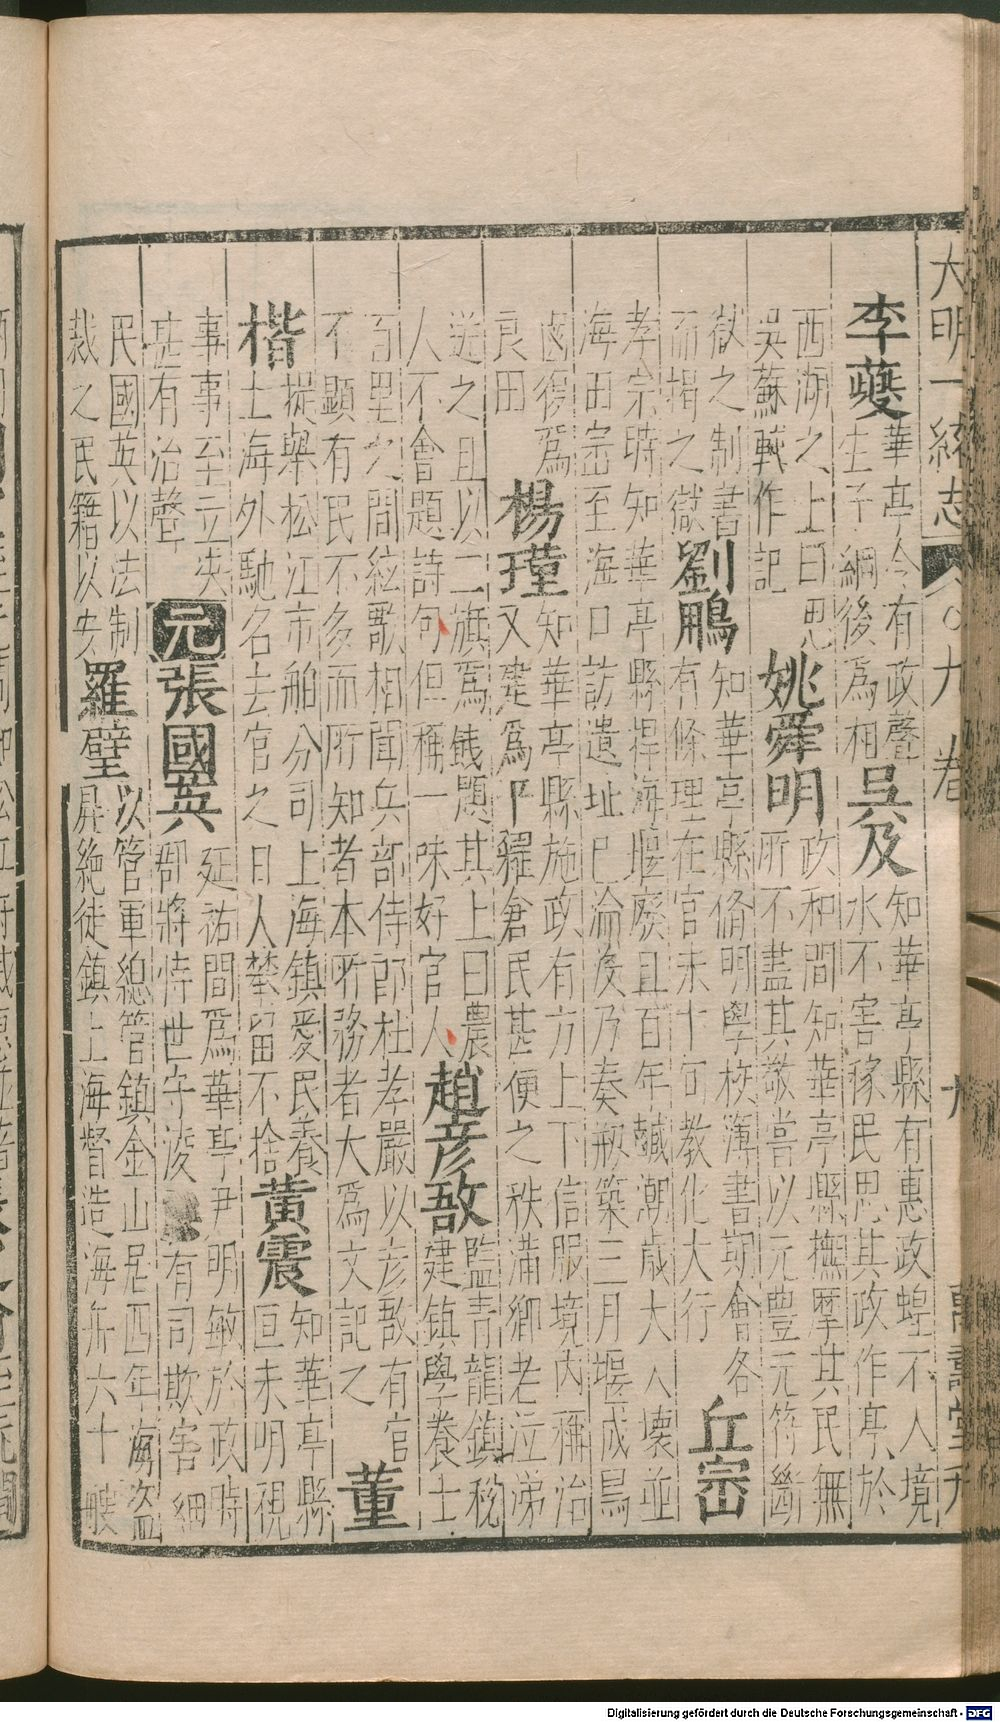 大明一統志 九卷 萬壽堂刊
李夔 華亭令有政聲
生子綱後爲相
吳及 知華亭縣有惠政蝗不入境
水不害稼民思其政作亭於
西湖之上曰思
吳蘇軾作記
姚舜明 政和間知華亭縣撫摩其民無
所不盡其敬嘗以元豊元符斷
獄之制書
而揭之獄
劉鵰 知華亭縣脩明學校簿書期會各
有條理在官未十旬教化大行
丘崈
孝宗時知華亭縣捍海堰廢且百年鹹潮歲大入壞並
海田崈至海口訪遺址已淪沒乃奏剏築三月堰成舄
鹵復爲
良田
楊瑾 知華亭縣施政有方上下信服境内稱治
又建爲下糴倉民甚便之秩滿鄉老泣涕
送之且以二旗爲餞題其上曰農
人不會題詩句但稱一味好官人
趙彦敔 監青龍鎮稅
建鎮學養士
百里之間絃歌相聞兵部侍郎杜孝嚴以彦敔有官
不顯有民不多而所知者本所務者大爲文記之
董
楷 提舉松江市舶分司上海鎮愛民養
士海外馳名去官之日人攀留不捨
黄震 知華亭縣
亘未明視
事事至立决
甚有治聲
元 張國英 延祐間爲華亭尹明敏於政時
郡將恃世守凌 有司欺害細
民國英以法制
裁之民籍以安
羅璧 以管軍總管鎮金山居四年海盗
屏絶徒鎮上海督造海舟六十艘
Digitalisierung gefördert durch die Deutsche Forschungsgemeinschaft - DFG